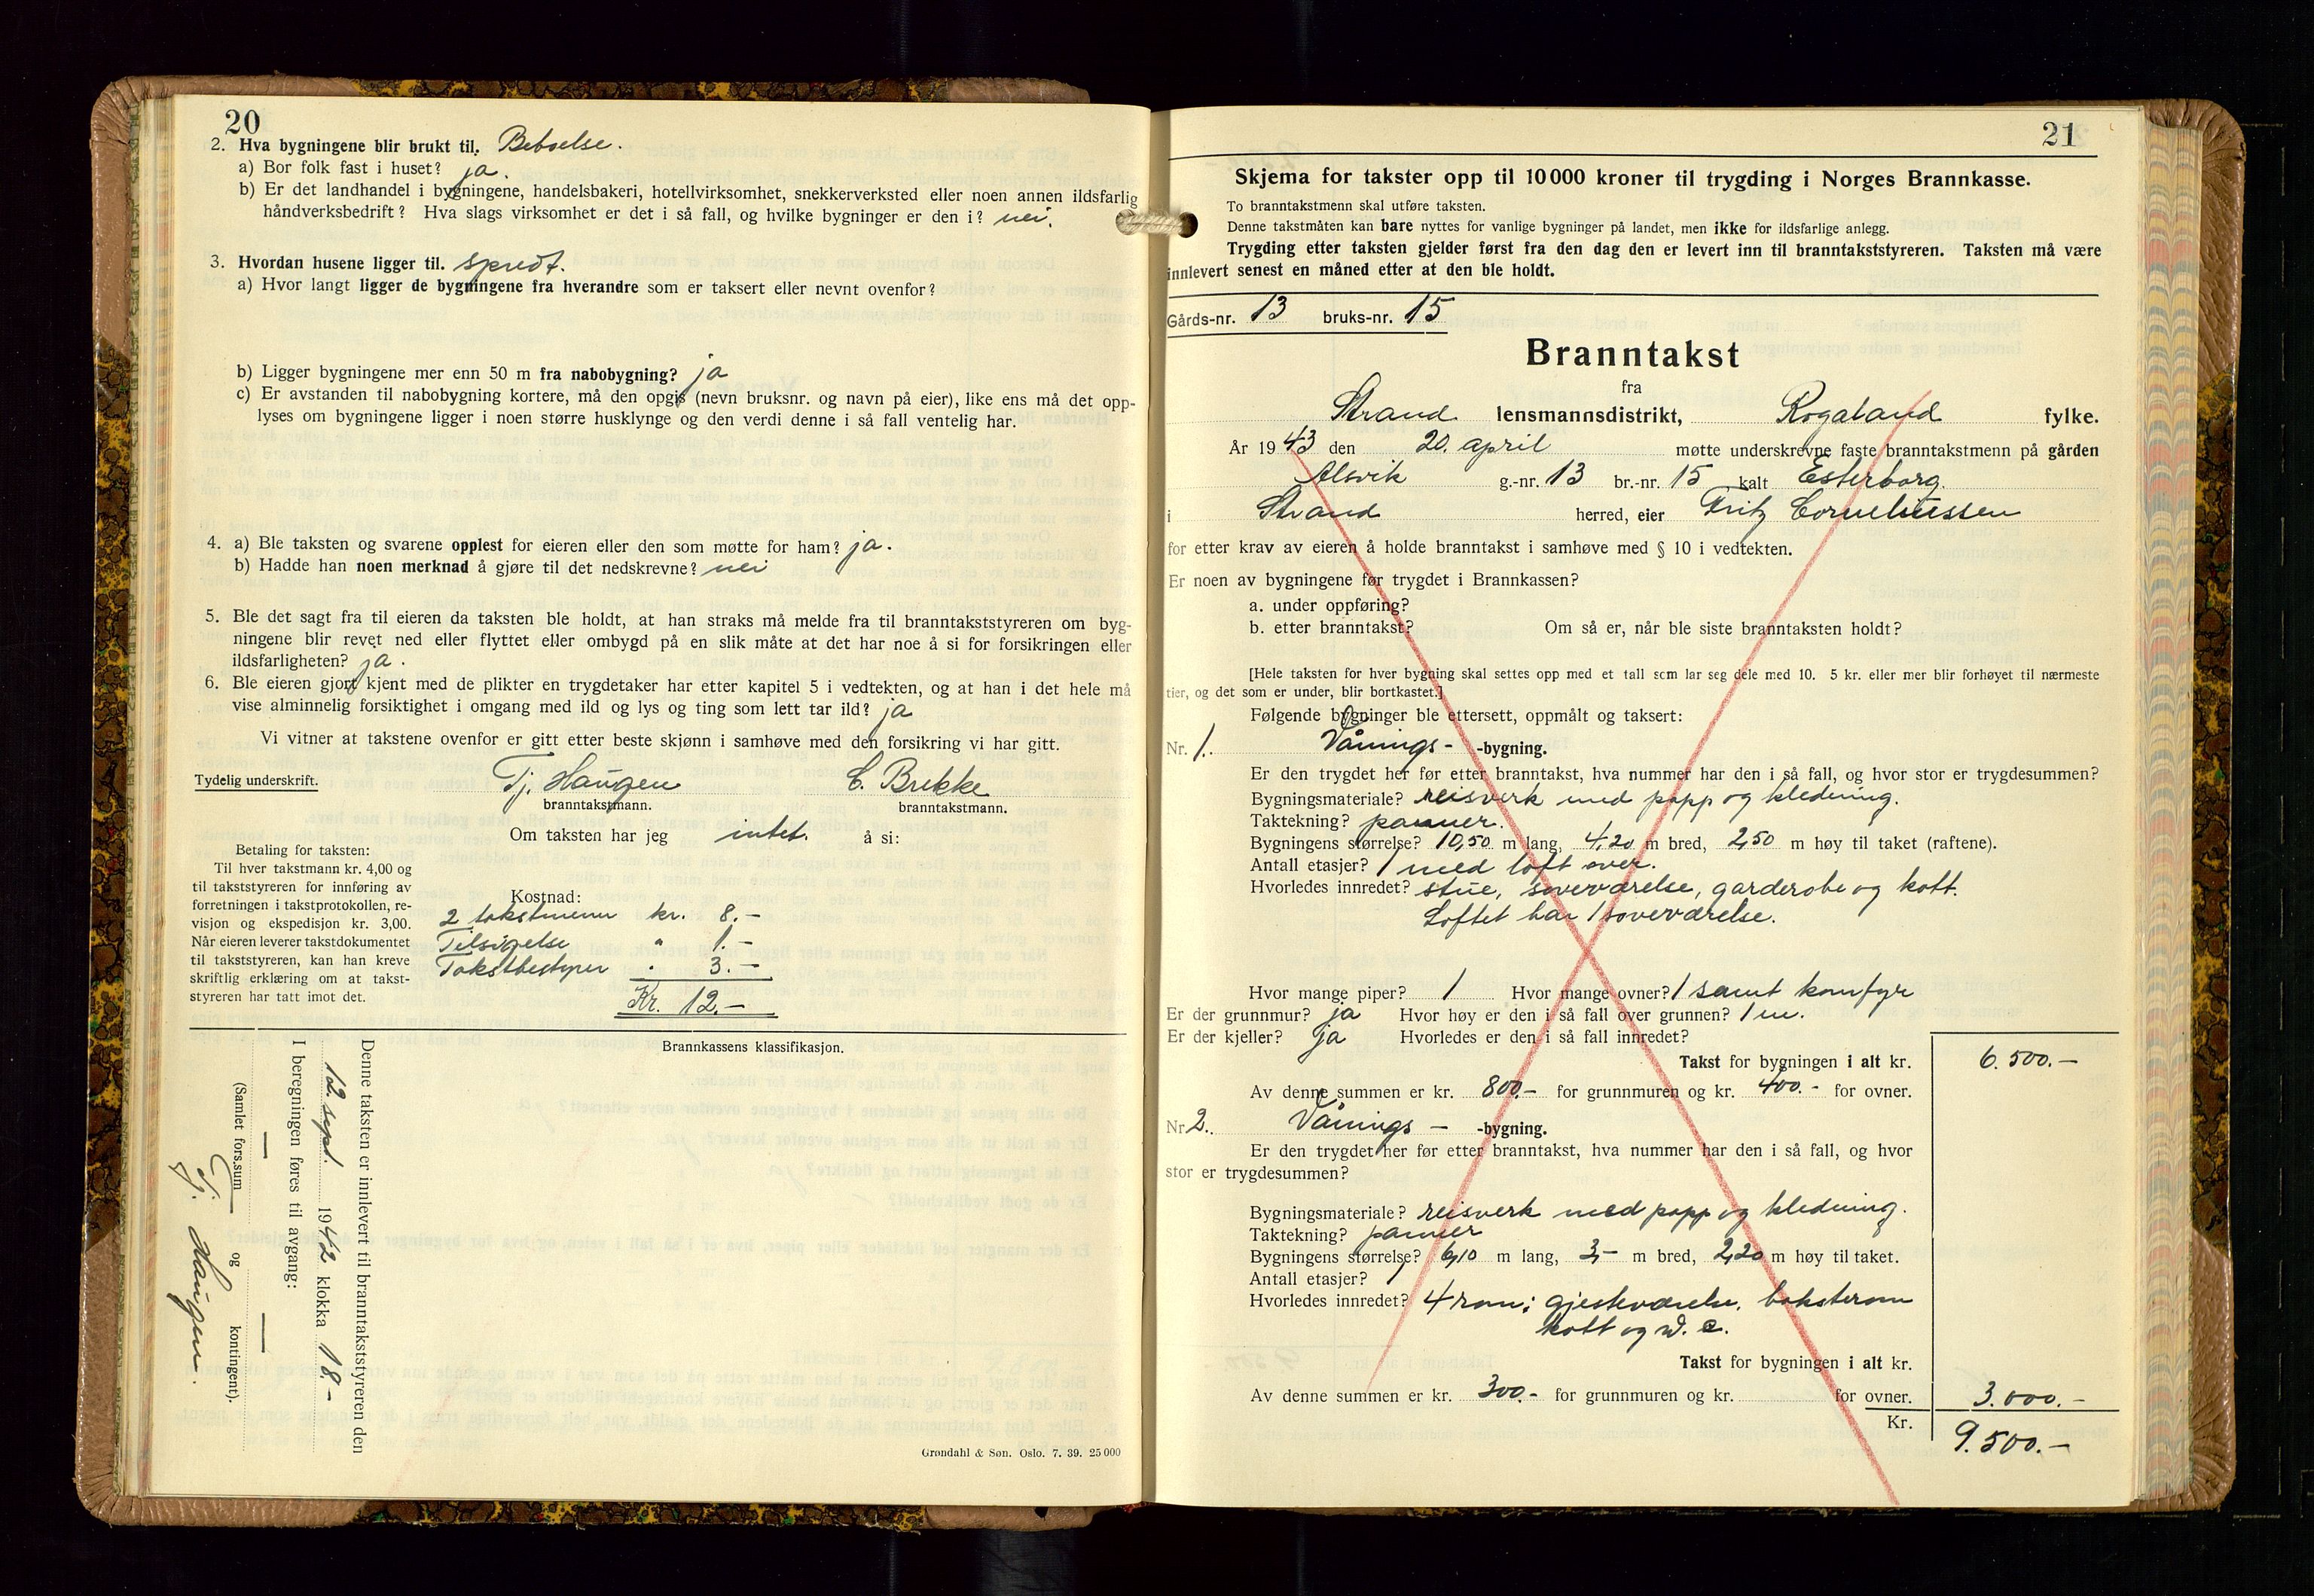 20
2. Hva bygningene blir brukt til. Beboelse.
a) Bor folk fast i huset? ja.
b) Er det landhandel i bygningene, handelsbakeri, hotellvirksomhet, snekkerverksted eller noen annen ildsfarlig
håndverksbedrift? Hva slags virksomhet er det i så fall, og hvilke bygninger er den i? nei.
3. Hvordan husene ligger til. spredt.
a) Hvor langt ligger de bygningene fra hverandre som er taksert eller nevnt ovenfor?
b) Ligger bygningene mer enn 50 m fra nabobygning? ja
c) Er avstanden til nabobygning kortere, må den opgis (nevn bruksnr. og navn på eier), like ens må det opp-
lyses om bygningene ligger i noen større husklynge og den verdi denne i så fall ventelig har.
4. a) Ble taksten og svarene opplest for eieren eller den som møtte for ham? ja.
b) Hadde han noen merknad å gjøre til det nedskrevne? nei
5. Ble det sagt fra til eieren da taksten ble holdt, at han straks må melde fra til branntakststyreren om byg-
ningene blir revet ned eller flyttet eller ombygd på en slik måte at det har noe å si for forsikringen eller
ildsfarligheten? ja.
6. Ble eieren gjort kjent med de plikter en trygdetaker har etter kapitel 5 i vedtekten, og at han i det hele må
vise alminnelig forsiktighet i omgang med ild og lys og ting som lett tar ild? ja
Vi vitner at takstene ovenfor er gitt etter beste skjønn i samhøve med den forsikring vi har gitt.
Tydelig underskrift. Tj. Haugen C. Brekke
branntakstmann. branntakstmann.
Om taksten har jeg intet. å si:
Betaling for taksten:
Til hver takstmann kr. 4,00 og
til takststyreren for innføring av
forretningen i takstprotokollen, re-
visjon og ekspedisjon kr. 3,00.
Når eieren leverer takstdokumentet
til takststyreren, kan han kreve
skriftlig erklæring om at takst-
styreren har tatt imot det.
Kostnad:
2 takstmenn kr. 8.-
Tilsigelse " 1.-
Takstbestyrer " 3.-
Kr. 12.-
Brannkassens klassifikasjon.
Denne taksten er innlevert til branntakststyreren den
12. sept. 1942 klokka 18.-
I beregningen føres til avgang:
(Samlet fors.sum — og — kontingent).
Tj. Haugen.
Grøndahl & Søn. Oslo. 7. 39. 25 000
21
Skjema for takster opp til 10 000 kroner til trygding i Norges Brannkasse.
To branntakstmenn skal utføre taksten.
Denne takstmåten kan bare nyttes for vanlige bygninger på landet, men ikke for ildsfarlige anlegg.
Trygding etter taksten gjelder først fra den dag den er levert inn til branntakststyreren. Taksten må være
innlevert senest en måned etter at den ble holdt.
Gårds-nr. 13 bruks-nr. 15
Branntakst
fra
Strand lensmannsdistrikt, Rogaland fylke.
År 1943 den 20. april møtte underskrevne faste branntakstmenn på gården
Alsvik g.-nr. 13 br.-nr. 15 kalt Esterborg.
i Strand herred, eier Fritz Corneliussen
for etter krav av eieren å holde branntakst i samhøve med § 10 i vedtekten.
Er noen av bygningene før trygdet i Brannkassen?
a. under oppføring?
b. etter branntakst? Om så er, når ble siste branntaksten holdt?
[Hele taksten for hver bygning skal settes opp med et tall som lar seg dele med 10. 5 kr. eller mer blir forhøyet til nærmeste
tier, og det som er under, blir bortkastet.]
Følgende bygninger ble ettersett, oppmålt og taksert:
Nr. 1. Vånings- -bygning.
Er den trygdet her før etter branntakst, hva nummer har den i så fall, og hvor stor er trygdesummen?
Bygningsmateriale? reisverk med papp og kledning.
Taktekning? panner.
Bygningens størrelse? 10,50 m lang, 4,20 m bred, 2,50 m høy til taket (raftene).
Antall etasjer? 1 med loft over.
Hvorledes innredet? stue, soveværelse, garderobe og kott.
Loftet har 1 soveværelse.
Hvor mange piper? 1 Hvor mange ovner? 1 samt komfyr
Er der grunnmur? ja Hvor høy er den i så fall over grunnen? 1 m.
Er der kjeller? ja Hvorledes er den i så fall innredet?
Takst for bygningen i alt kr. 6.500.-
Av denne summen er kr. 800.- for grunnmuren og kr. 400.- for ovner.
Nr. 2. Vånings- -bygning.
Er den trygdet her før etter branntakst, hva nummer har den i så fall, og hvor
stor er trygdesummen?
Bygningsmateriale? reisverk med papp og kledning.
Taktekning? panner
Bygningens størrelse? 6,10 m lang, 3,- m bred, 2,20 m høy til taket.
Antall etasjer? 1
Hvorledes innredet? 4 rom: gjesteværelse, baksterom
kott og w.c.
Takst for bygningen i alt kr.
Av denne summen er kr. 300.- for grunnmuren og kr. for ovner. 3.000.-
Kr. 9.500.-